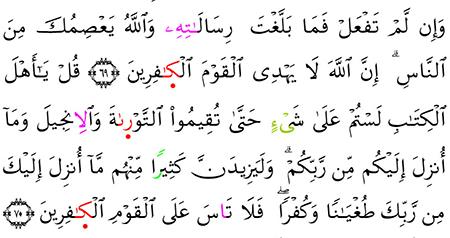 وَإِن لَّمْ تَفْعَلْ فَمَا بَلَّغْتَ رِسَالَـٰتِهِۦ وَٱللَّهُ يَعْصِمُكَ مِنَ
ٱلنَّاسِ ۗ إِنَّ ٱللَّهَ لَا يَهْدِى ٱلْقَوْمَ ٱلْكَـٰفِرِينَ ٦٩ قُلْ يَـٰٓأَهْلَ
ٱلْكِتَـٰبِ لَسْتُمْ عَلَىٰ شَىْءٍ حَتَّىٰ تُقِيمُوا۟ ٱلتَّوْرَىٰةَ وَٱلْإِنجِيلَ وَمَآ
أُنزِلَ إِلَيْكُم مِّن رَّبِّكُمْ ۗ وَلَيَزِيدَنَّ كَثِيرًا مِّنْهُم مَّآ أُنزِلَ إِلَيْكَ
مِن رَّبِّكَ طُغْيَـٰنًا وَكُفْرًا ۖ فَلَا تَاسَ عَلَى ٱلْقَوْمِ ٱلْكَـٰفِرِينَ ٧٠